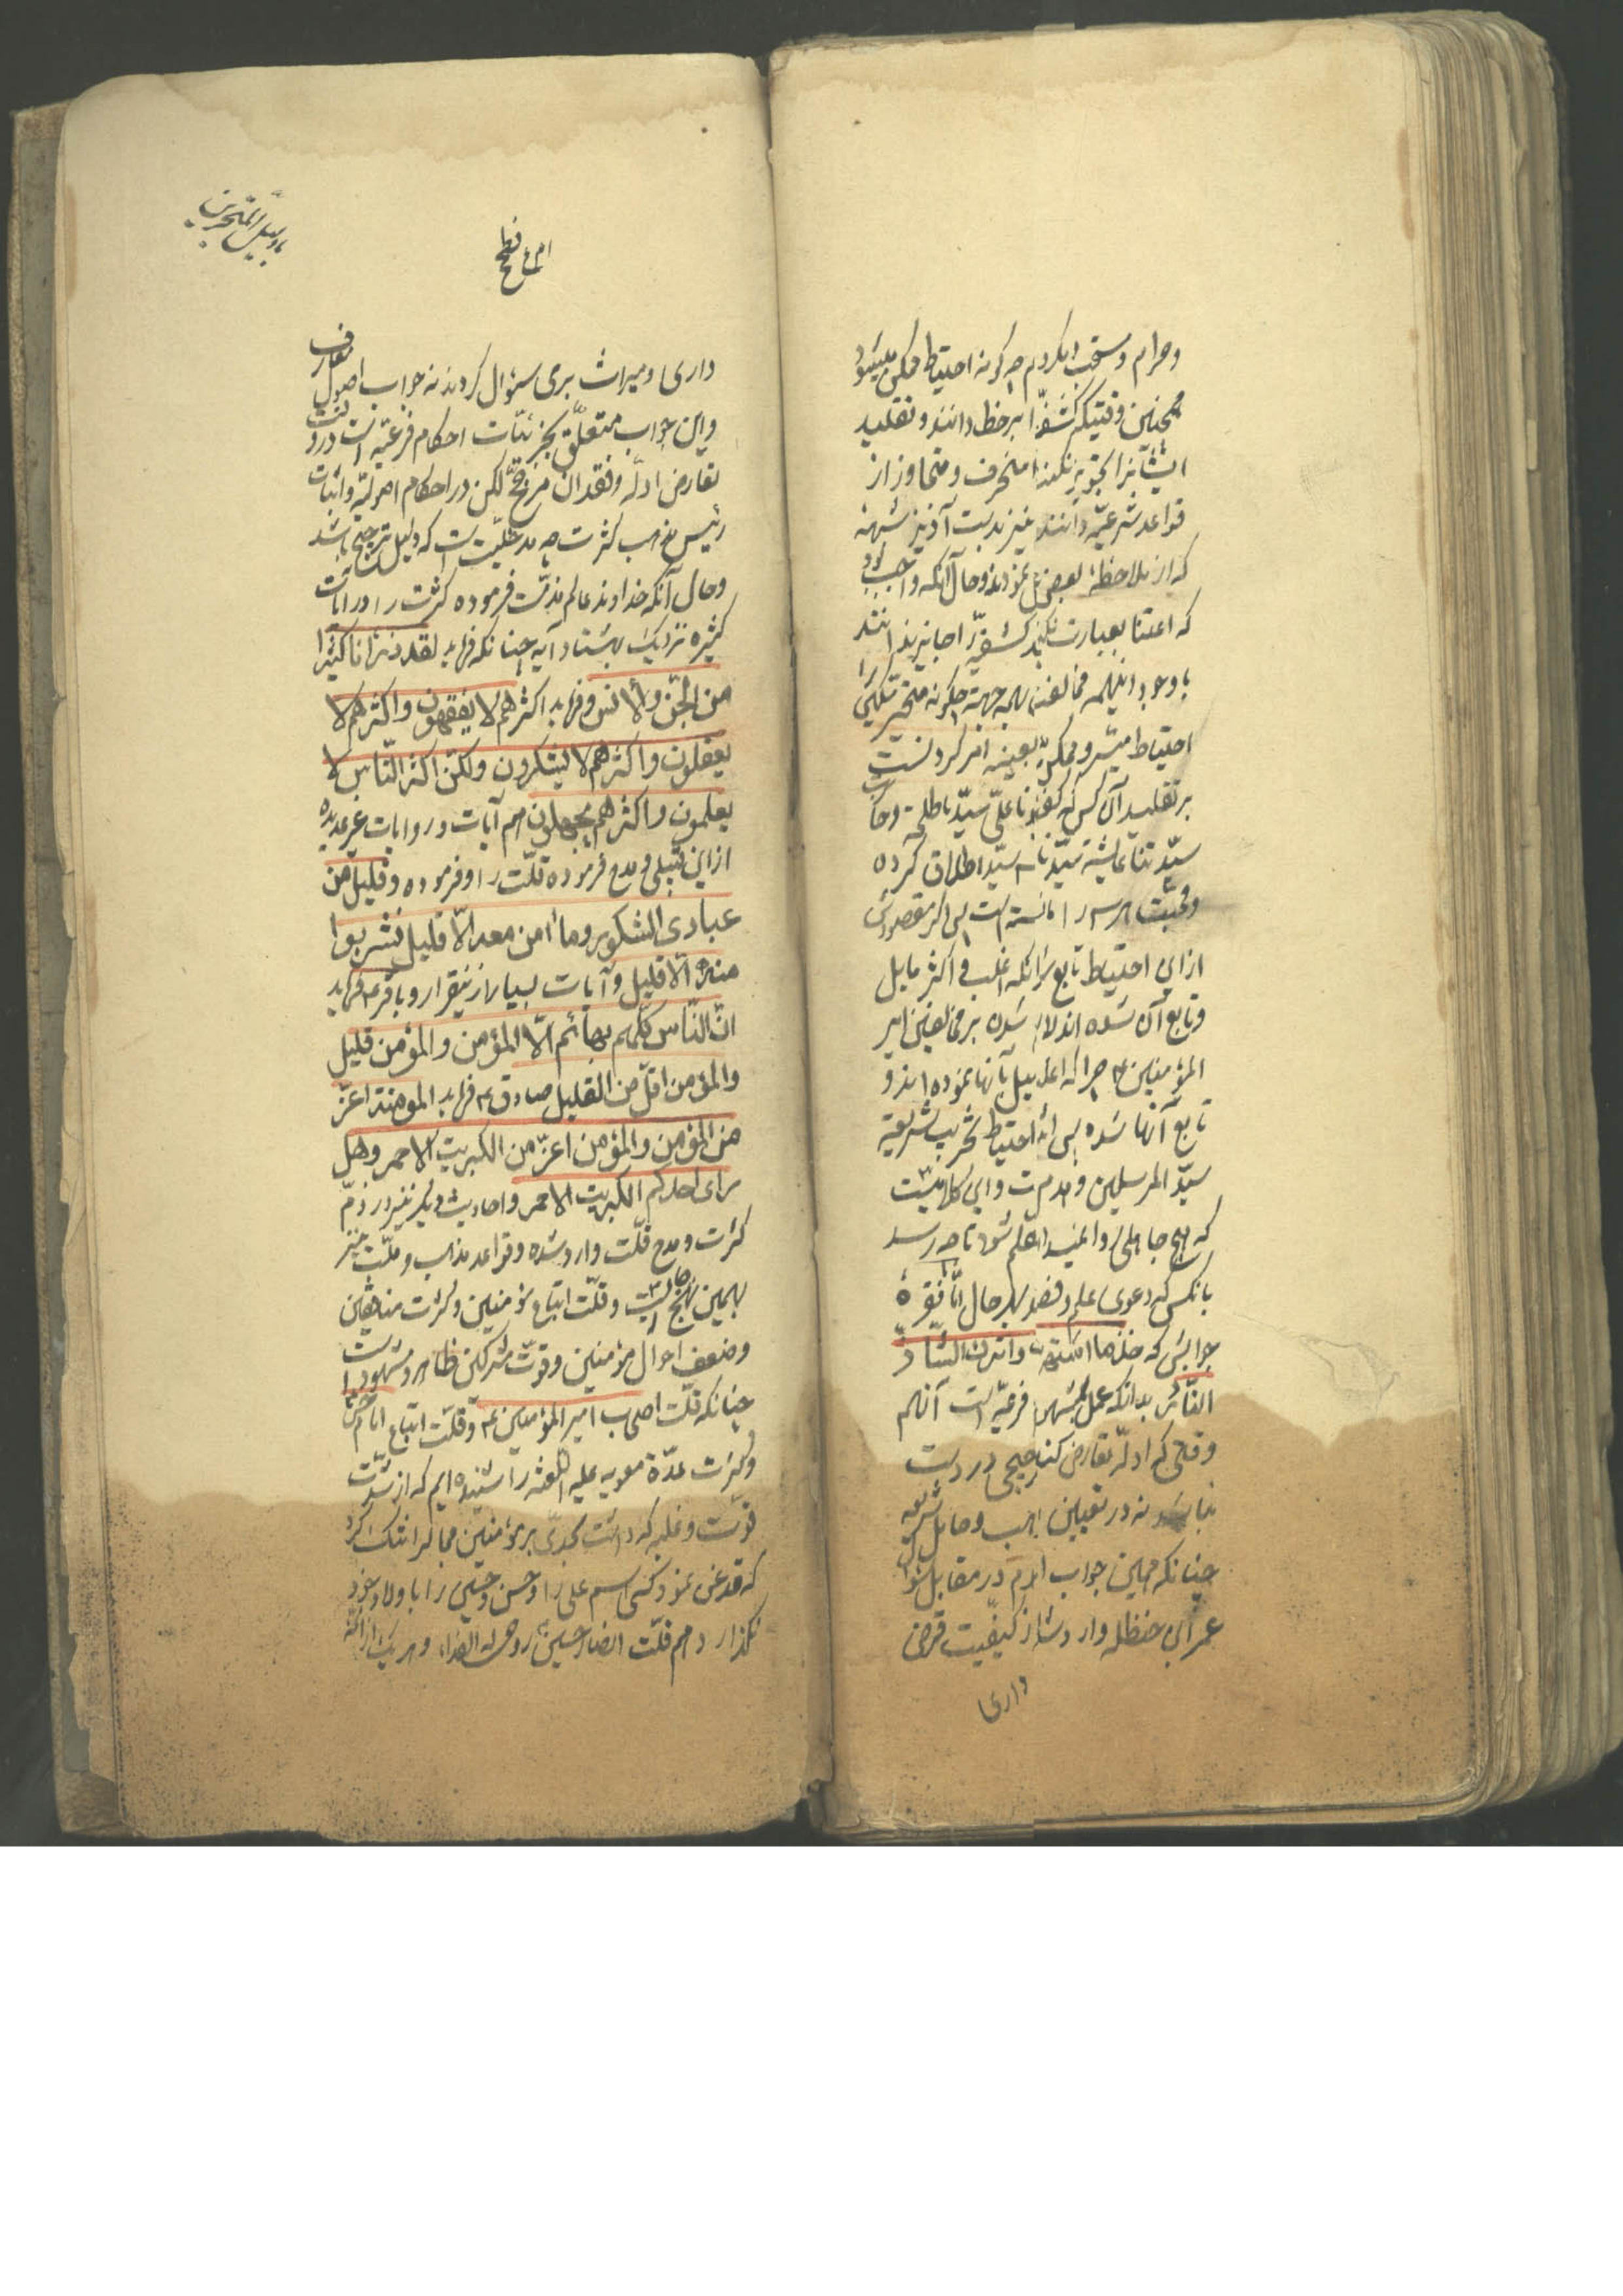 وحرام ومستحب دیکر دم چه کونه احتیاط ممکن میشود
همچنین وقتیکه کشفرا بر خطا دانند وتقلید
ایشانرا تجویز نکنند منحرف ومتجاوز از
قواعد شرعیه دانند نیز بدست آویز شبهه
که از ملاحظهٔ بعضی نموده‌اند وحال آنکه واجب بود
که اعتنا بعبارت نکنند کشفیه را جایز ندانند
با وجود اینهمه مخالفت بهمه جهة چکونه
احتیاط میشود ممکن بعینه
بر تقلید آن کس که کفته ناعلی سید باطلست وحال
سید اطلاق کرده
ومحبت هر سه را دانسته است پس اکر مقصودش
از این احتیاط تابع شدن انکه اغلب و اکثر مایل
وتابع آن شده اند لازم شده بر مخالفین امیر
المؤمنین ع چرا که اغلب میل بآنها نموده اند و
تابع آنها شده پس این احتیاط تخریب شریعة
سید المرسلین وهدمست واین کلامیست
که هیچ جاهلی روا نمیدارد متکلم شود تا چه رسد
بانکس که دعوی علم وفضل بهر حال امّا فقرهٔ
جوابش که خذ بما اشتهر واترک الشّاذّ
النّادر بدانکه عمل بمشهور در فرعیّه است آنهم
وقتی که ادلّه تعارض کند ومرجحی در دست
نباشد نه در تعیین مذهب وحامل شریعه
چنانکه همین جواب امام در مقابل سؤال
عمر ابن حنظله وارد شد از کیفیت قرض
داری
یا دلیل المتحیرین
داری ومیراث بری سئوال کردند نه جواب اصول معارف
واین جواب متعلّق بجزئیّات احکام فرعیّه است در وقت
تعارض ادلّه وفقدان مرجّح لکن در احکام اصولیّه واثبات
رئیس مذهب کثرت چه مدخلیّت است که دلیل ترجیح باشد
وحال آنکه خداوند عالم مذمّت فرموده کثرت را در آیات
کثیره نزدیک بهشتاد آیه چنانکه فرماید لقد ذرأنا کثیرا
من الجنّ والانس وفرماید اکثرهم لا یفقهون واکثرهم لا
یعقلون واکثرهم لا یشکرون ولکن اکثر النّاس لا
یعلمون واکثرهم یجهلون هم آیات وروایات غیر عدیده
از این قبیل ومدح فرموده قلّت را وفرموده وقلیل من
عبادی الشکور وما آمن معه الّا قلیل فشربوا
منه الّا قلیل وآیات بسیار از اینقرار وباقر ع فرماید
انّ النّاس کلّهم بهائم الّا المؤمن والمؤمن قلیل
والمؤمن اقلّ من القلیل صادق ع فرماید المؤمنة اعزّ
من المؤمن والمؤمن اعزّ من الکبریت الاحمر وهل
رای احدکم الکبریت الاحمر واحادیث دیکر نیز در ذمّ
کثرت ومدح قلّت وارد شده وقواعد مذاهب وملّت نیز
بهمین نهج جاریست وقلّت اتباع مؤمنین وکثرت منافقین
وضعف احوال مؤمنین وقوّت مشرکین ظاهر ومشهود است
چنانکه قلّت اصحاب امیر المؤمنین ع وقلّت اتباع امام حسن
وکثرت عدّة معویه علیه اللعنه را شنیده ایم که از شدّت
قوّت وغلبه که داشت بحدّی بر مؤمنین مجال را تنک کرد
که قدغن نمود کسی اسم علی را وحسن وحسین را با ولاد خود
نکذارد وهم قلّت انصار حسین روحی له الفداء وهر یک از ائمّه